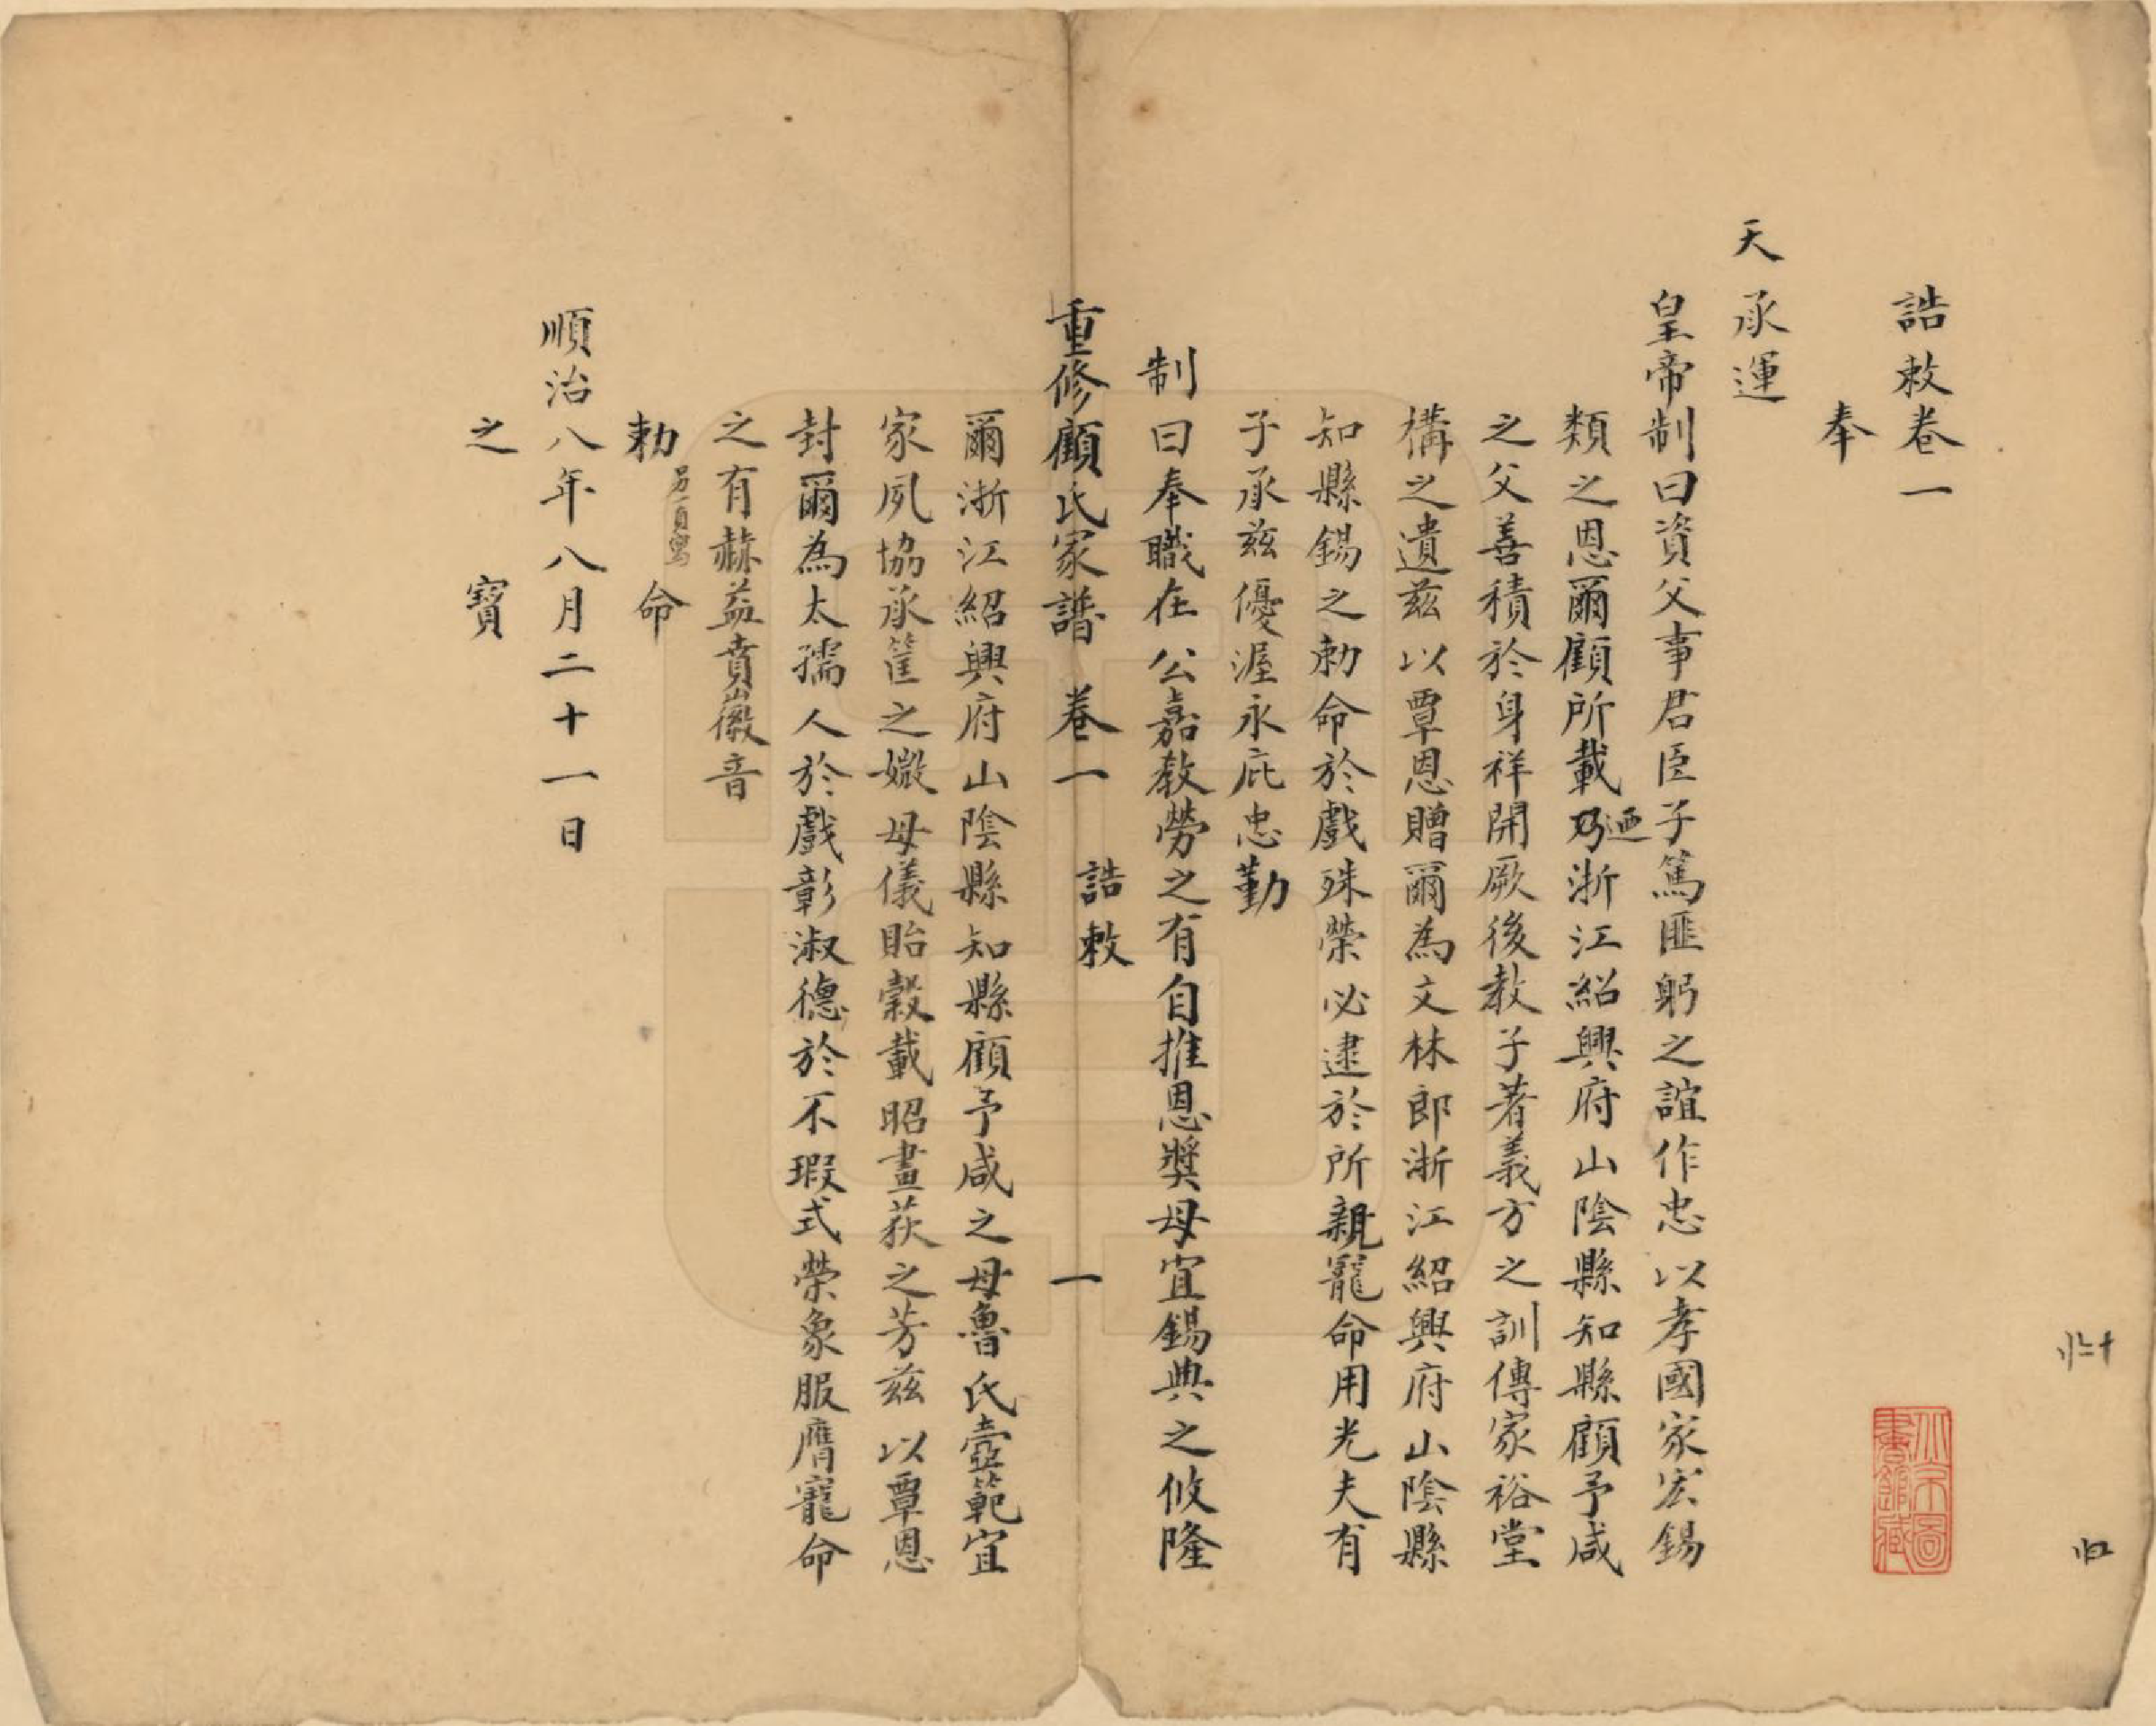 誥敕卷一
奉
天承運
皇帝制曰資父事君臣子篤匪躬之誼作忠以孝國家宏錫
類之恩爾顧所載乃浙江紹興府山陰縣知縣顧予咸
迺
之父善積於身祥開厥後教子著義方之訓傳家裕堂
構之遺茲以覃恩贈爾為文林郎浙江紹興府山陰縣
知縣錫之勅命於戲殊榮必逮於所親寵命用光夫有
子承茲優渥永庇忠勤
制曰奉職在公嘉教勞之有自推恩獎母宜錫典之攸隆
重修顧氏家譜 卷一 誥敕 一
爾浙江紹興府山陰縣知縣顧予咸之母魯氏壼範宜
家夙協承筐之媺母儀貽穀載昭畫荻之芳茲以覃恩
封爾為太孺人於戲彰淑德於不瑕式榮象服膺寵命
之有赫益賁徽音
勅命
另頁寫
順治八年八月二十一日
之寶
北京圖書館藏